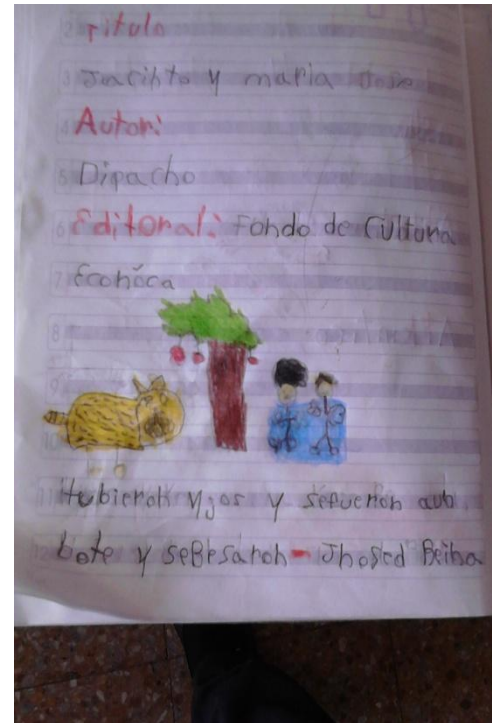 Titulo
Jacihto y maria Jose
Autor:
Dipacho
Editoral: Fondo de Cultura
Econoca
Hubieroh yjos y sefueroh aub
bote y seBesaroh - Jhosed Beiba